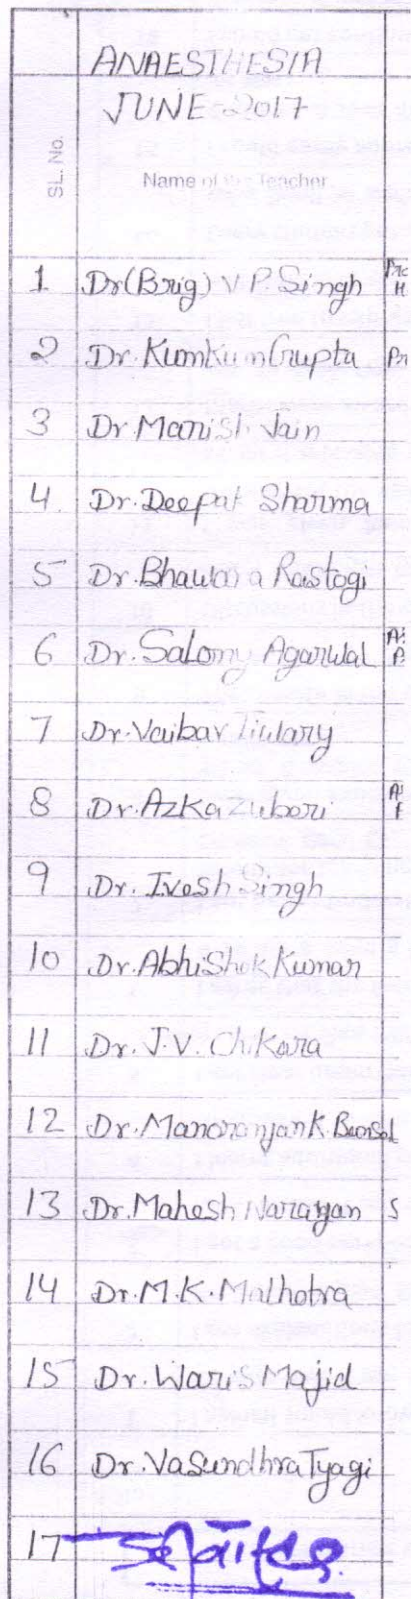 ANAESTHESIA
JUNE 2017
SL. No.
Name of the Teacher
1 Dr (Brig) V.P. Singh
2 Dr. Kumkum Gupta
3 Dr Manish Jain
4. Dr. Deepak Sharma
5 Dr. Bhawana Rastogi
6 Dr. Salony Agarwal
7 Dr. Vaibav Tiwary
8 Dr. Azka Zuberi
9 Dr. Ivesh Singh
10 Dr. Abhishek Kumar
11 Dr. J.V. Chikara
12 Dr. Manoranjan K. Bansal
13 Dr. Mahesh Narayan S
14 Dr. M.K. Malhotra
15 Dr. Waris Majid
16 Dr. Vasundhra Tyagi
17